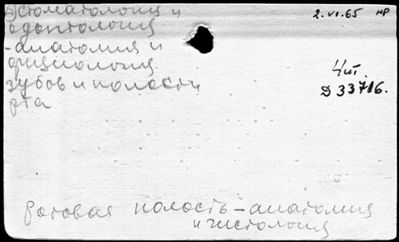 Стоматология и
одонтология
-анатомия и
физиология
зубов и полости
рта
2.VI.65 нр
4шт.
Д 33716.
ротовая полость-анатомия
и гистология